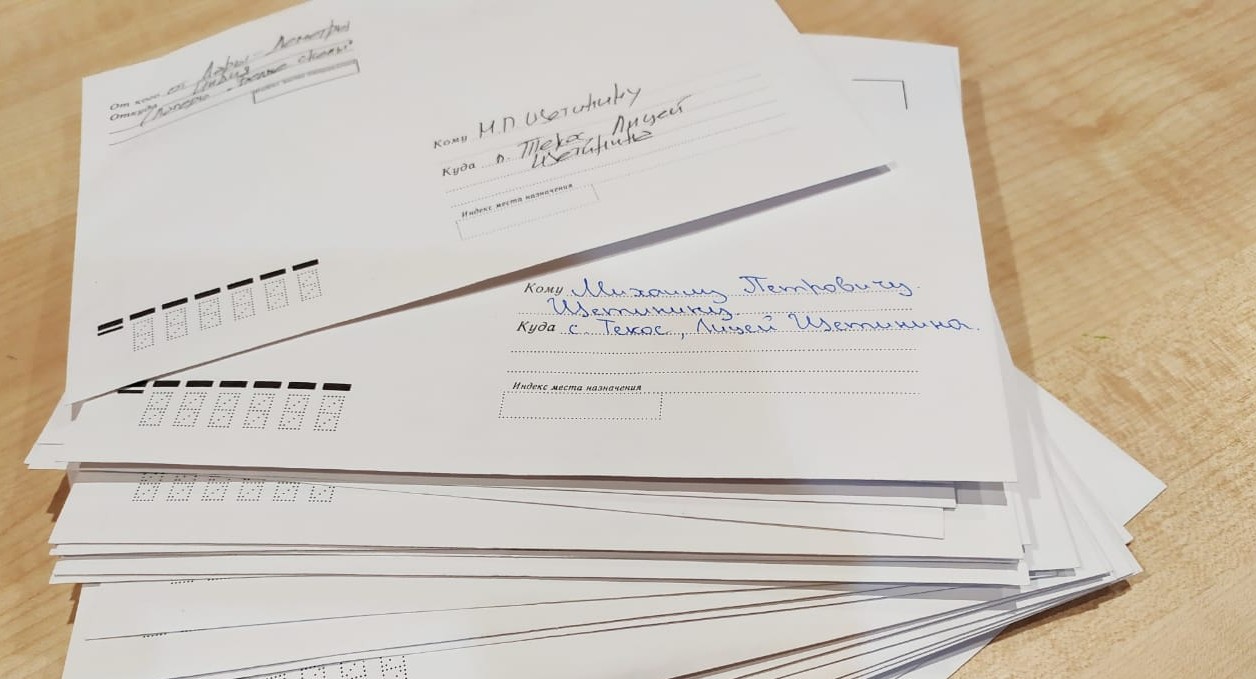 От кого от Лары - Деметры
Откуда Индия
Кому М.П. Щетинину
Куда п. Текос, Лицей
Щетинина
Индекс места назначения
Кому Михаилу Петровичу
Щетинину
Куда с. Текос, Лицей Щетинина.
Индекс места назначения